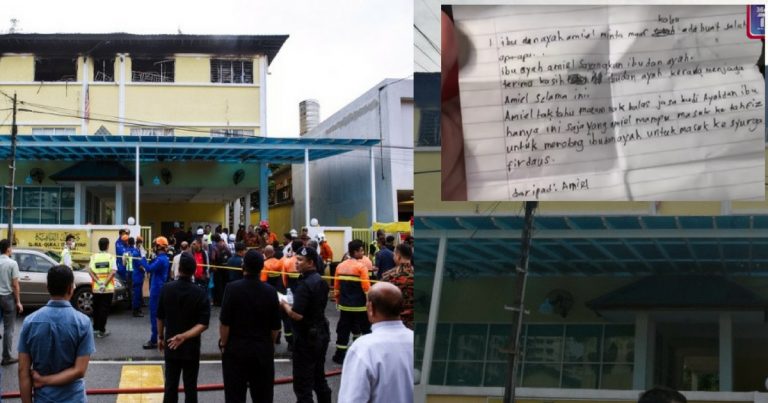 kalo
1. ibu dan ayah amiel mintu maaf ada buat salah
apa-apa.
ibu ayah amiel sayangkan ibu dan ayah.
terima kasih ibu dan ayah kerana menjaga
Amiel selama ini
Amiel tak tahu macam nak balas jasa budi Ayah dan ibu
hanya ini saja yang amiel mampu masuk ke tahfiz
untuk menolong ibu dan ayah untuk masuk ke syurga
firdaus.
daripada: Amiel